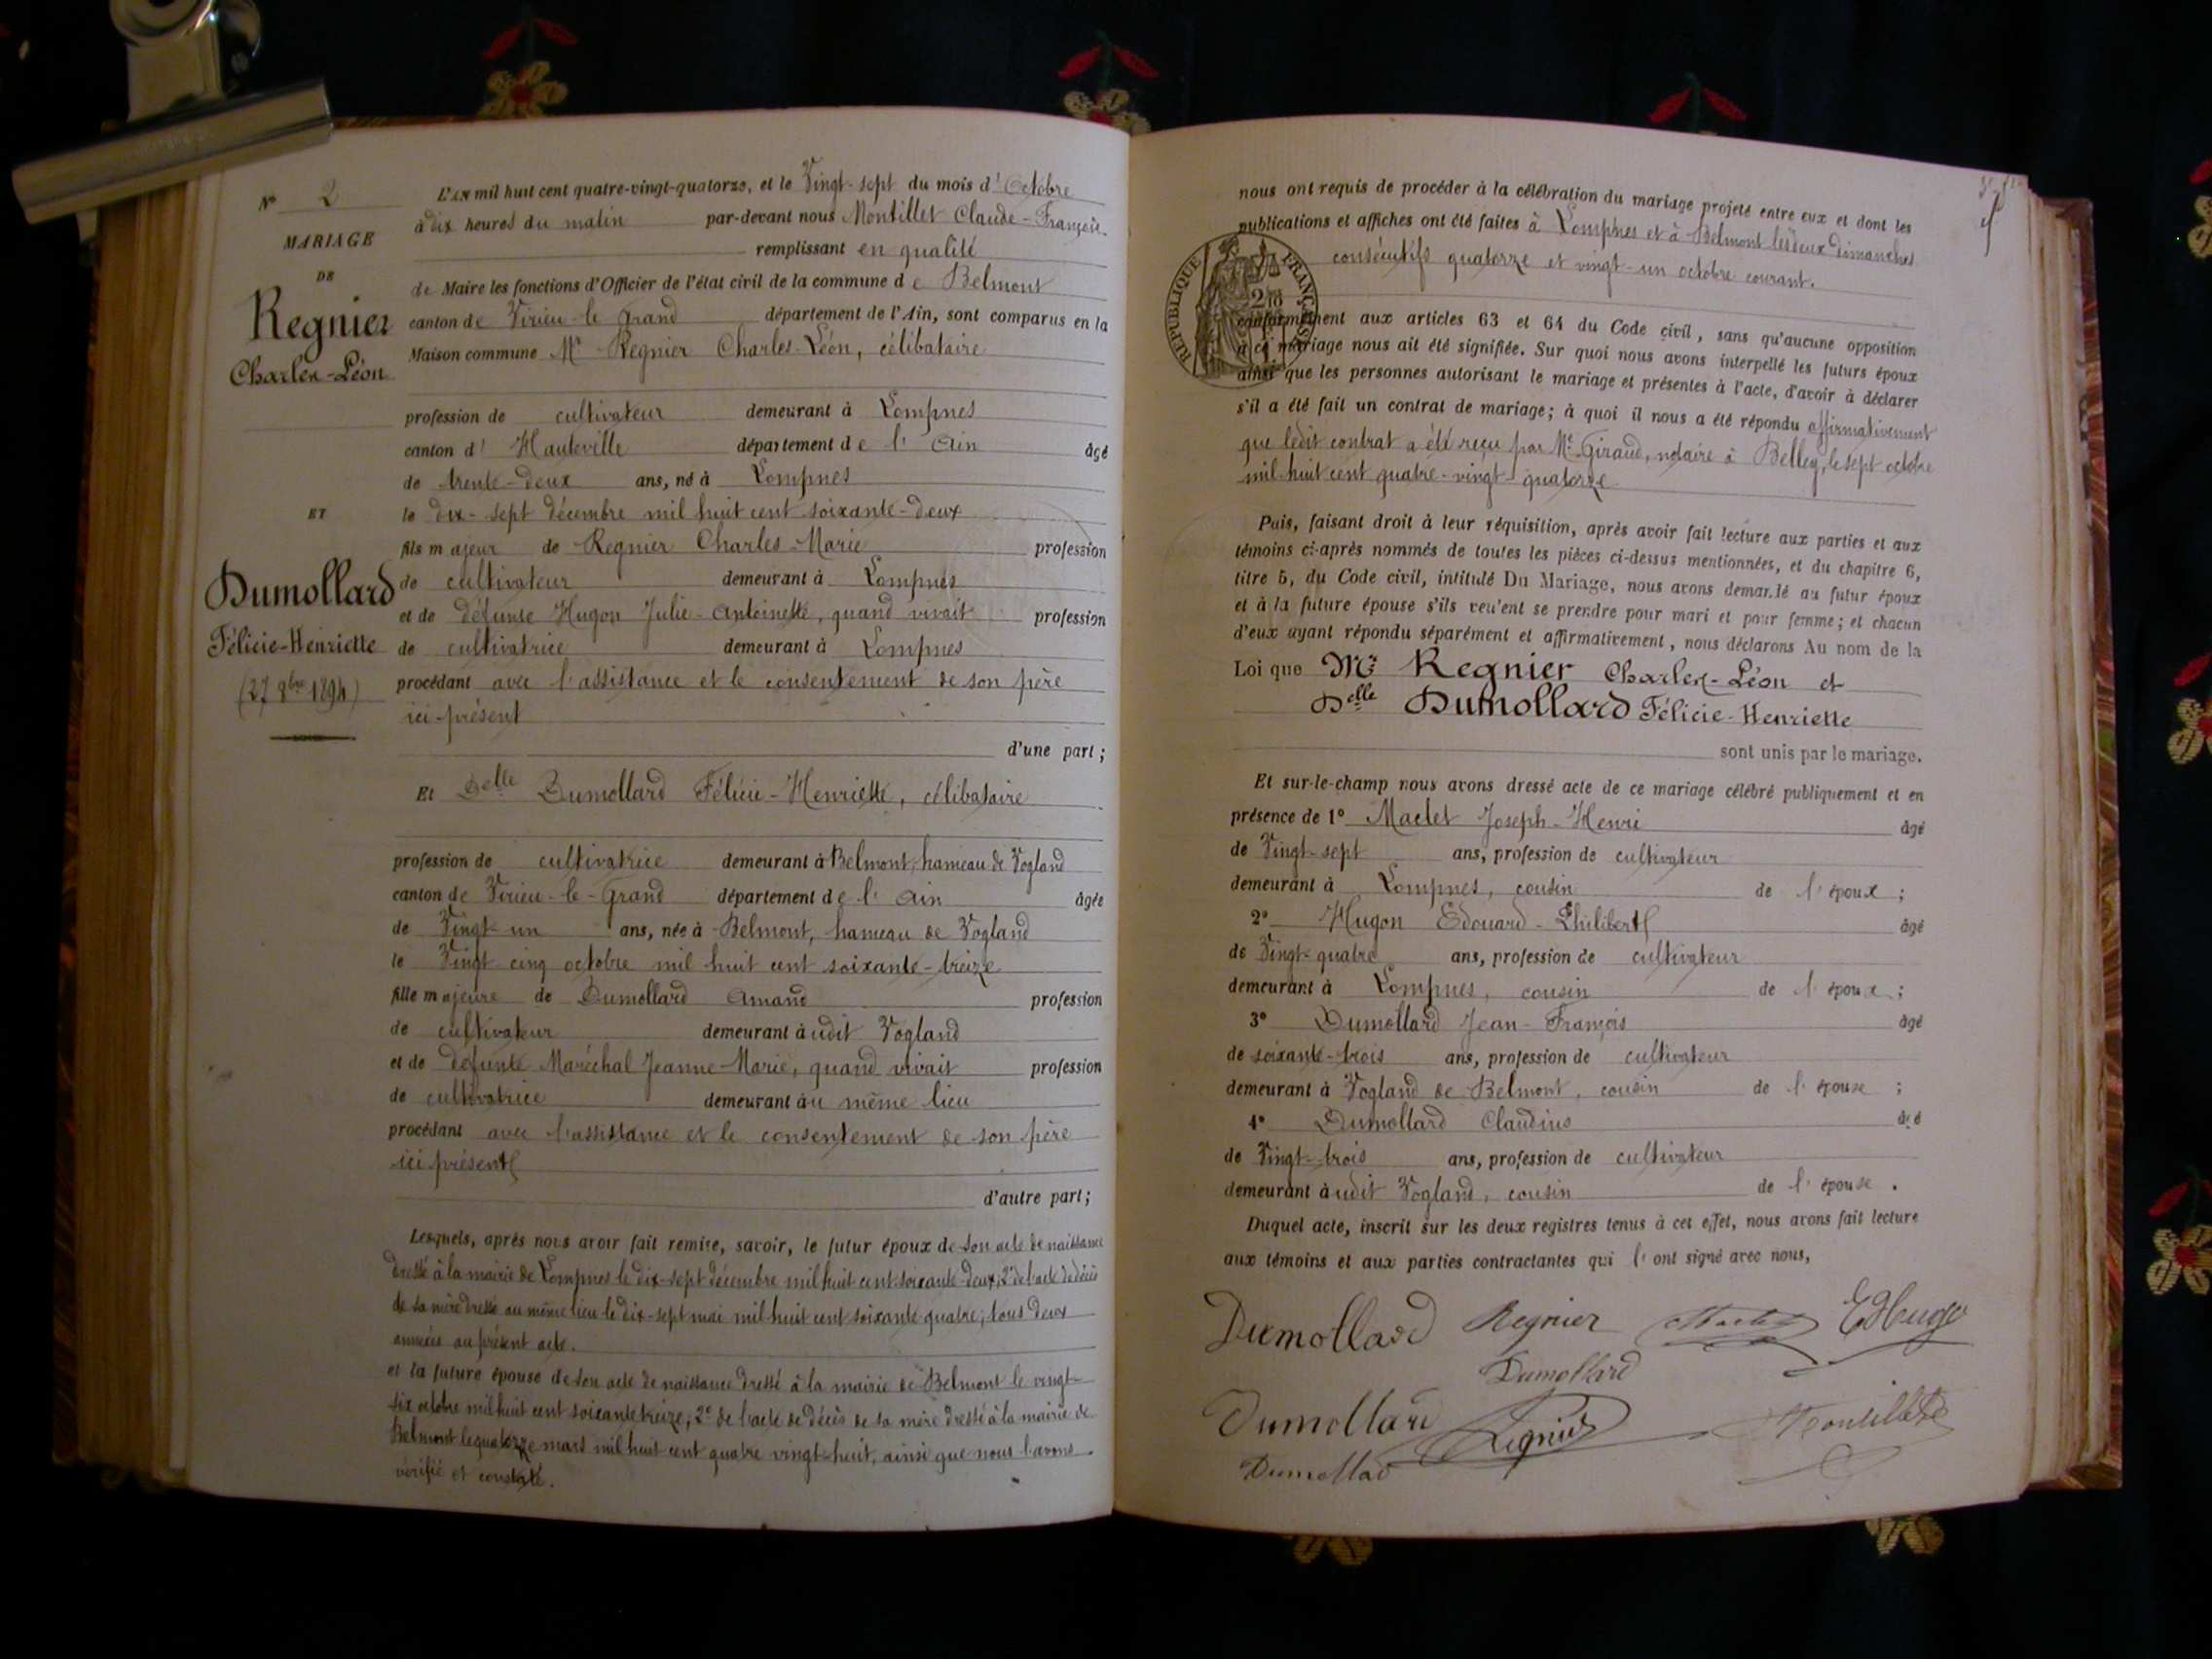 N° 2
MARIAGE
DE
Regnier
Charles-Léon
ET
Dumollard
Félicie-Henriette
(27 8bre 1894)
L'AN mil huit cent quatre-vingt-quatorze, et le Vingt-sept du mois d'Octobre
à dix heures du matin par-devant nous Montillet Claude-François
remplissant en qualité
de Maire les fonctions d'Officier de l'état civil de la commune de Belmont
canton de Virieu-le-Grand département de l'Ain, sont comparus en la
Maison commune Mr Regnier Charles-Léon, célibataire
profession de cultivateur demeurant à Lompnes
canton d'Hauteville département de l'Ain âgé
de trente-deux ans, né à Lompnes
le dix-sept décembre mil huit cent soixante-deux
fils majeur de Regnier Charles-Marie profession
de cultivateur demeurant à Lompnes
et de défunte Hugon Julie-Antoinette, quand vivait profession
de cultivatrice demeurant à Lompnes
procédant avec l'assistance et le consentement de son père
ici-présent
d'une part;
Et Delle Dumollard Félicie-Henriette, célibataire
profession de cultivatrice demeurant à Belmont, hameau de Vogland
canton de Virieu-le-Grand département de l'Ain âgée
de Vingt-un ans, née à Belmont, hameau de Vogland
le Vingt-cinq octobre mil huit cent soixante-treize
fille majeure de Dumollard Amand profession
de cultivateur demeurant audit Vogland
et de défunte Maréchal Jeanne-Marie, quand vivait profession
de cultivatrice demeurant au même lieu
procédant avec l'assistance et le consentement de son père
ici présent
d'autre part;
Lesquels, après nous avoir fait remise, savoir, le futur époux de son acte de naissance
dressé à la mairie de Lompnes le dix-sept décembre mil huit cent soixante-deux; 2° de l'acte de décès
de sa mère dressé au même lieu le dix-sept mai mil huit cent soixante-quatre; tous deux
annexés au présent acte.
et la future épouse de son acte de naissance dressé à la mairie de Belmont le vingt-
six octobre mil huit cent soixante treize; 2° de l'acte de décès de sa mère dressé à la mairie de
Belmont le quatorze mars mil huit cent quatre vingt-huit, ainsi que nous l'avons
vérifié et constaté.
nous ont requis de procéder à la célébration du mariage projeté entre eux et dont les
publications et affiches ont été faites à Lompnes et à Belmont les deux dimanches
consécutifs quatorze et vingt-un octobre courant.
REPUBLIQUE FRANÇAISE
conformément aux articles 63 et 64 du Code civil, sans qu'aucune opposition
à ce mariage nous ait été signifiée. Sur quoi nous avons interpellé les futurs époux
ainsi que les personnes autorisant le mariage et présentes à l'acte, d'avoir à déclarer
s'il a été fait un contrat de mariage; à quoi il nous a été répondu affirmativement
que ledit contrat a été reçu par Me Giraud, notaire à Belley, le sept octobre
mil-huit cent quatre-vingt-quatorze
Puis, faisant droit à leur réquisition, après avoir fait lecture aux parties et aux
témoins ci-après nommés de toutes les pièces ci-dessus mentionnées, et du chapitre 6,
titre 5, du Code civil, intitulé Du Mariage, nous avons demandé au futur époux
et à la future épouse s'ils veulent se prendre pour mari et pour femme; et chacun
d'eux ayant répondu séparément et affirmativement, nous déclarons Au nom de la
Loi que Mr Regnier Charles-Léon et
Delle Dumollard Félicie-Henriette
sont unis par le mariage.
Et sur-le-champ nous avons dressé acte de ce mariage célébré publiquement et en
présence de 1° Maclet Joseph-Henri âgé
de Vingt-sept ans, profession de cultivateur
demeurant à Lompnes, cousin de l'époux;
2° Hugon Edouard-Philibert âgé
de Vingt-quatre ans, profession de cultivateur
demeurant à Lompnes, cousin de l'époux;
3° Dumollard Jean-François âgé
de soixante-trois ans, profession de cultivateur
demeurant à Vogland de Belmont, cousin de l'épouse;
4° Dumollard Claudius âgé
de Vingt-trois ans, profession de cultivateur
demeurant audit Vogland, cousin de l'épouse.
Duquel acte, inscrit sur les deux registres tenus à cet effet, nous avons fait lecture
aux témoins et aux parties contractantes qui l'ont signé avec nous,
Dumollard Regnier Maclet E Hugon
Dumollard
Dumollard Regnier Montillet
Dumollard